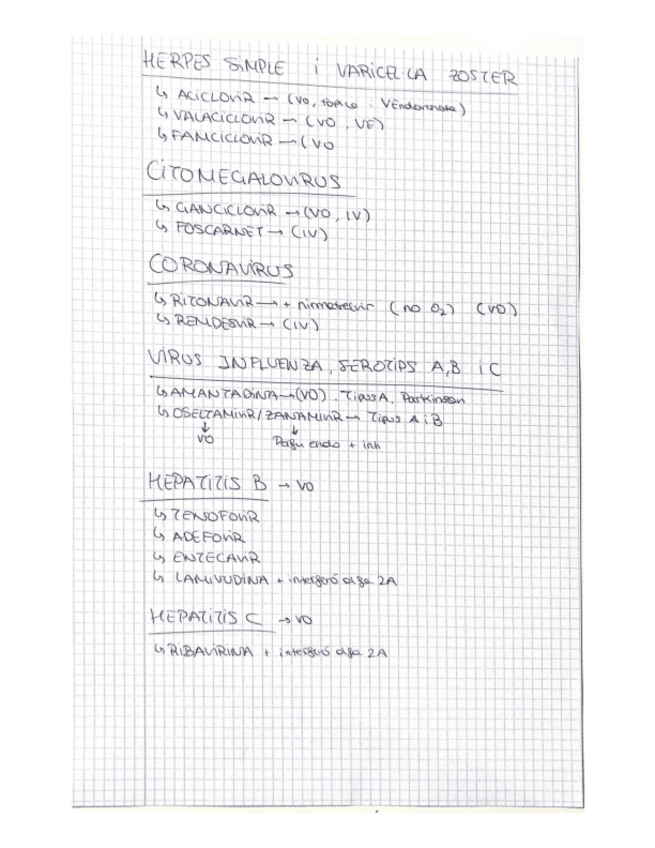 HERPES SIMPLE i VARICEL·LA ZOSTER
↳ ACICLOVIR → (VO, tòpica, VEndovenosa)
↳ VALACICLOVIR → (VO, VE)
↳ FAMCICLOVIR → (VO
CITOMEGALOVIRUS
↳ GANCICLOVIR → (VO, IV)
↳ FOSCARNET → (IV)
CORONAVIRUS
↳ RITONAVIR → + nirmatrelvir (no O2) (VO)
↳ REMDESIVIR → (IV)
VIRUS INFLUENZA, SEROTIPS A, B i C
↳ AMANTADINA → (VO). Tipus A, Parkinson
↳ OSELTAMIVIR/ZANAMIVIR → Tipus A i B
↓ ↓
VO endo + inh
HEPATITIS B → VO
↳ TENOFOVIR
↳ ADEFOVIR
↳ ENTECAVIR
↳ LAMIVUDINA + interferó alfa 2A
HEPATITIS C → VO
↳ RIBAVIRINA + interferó alfa 2A